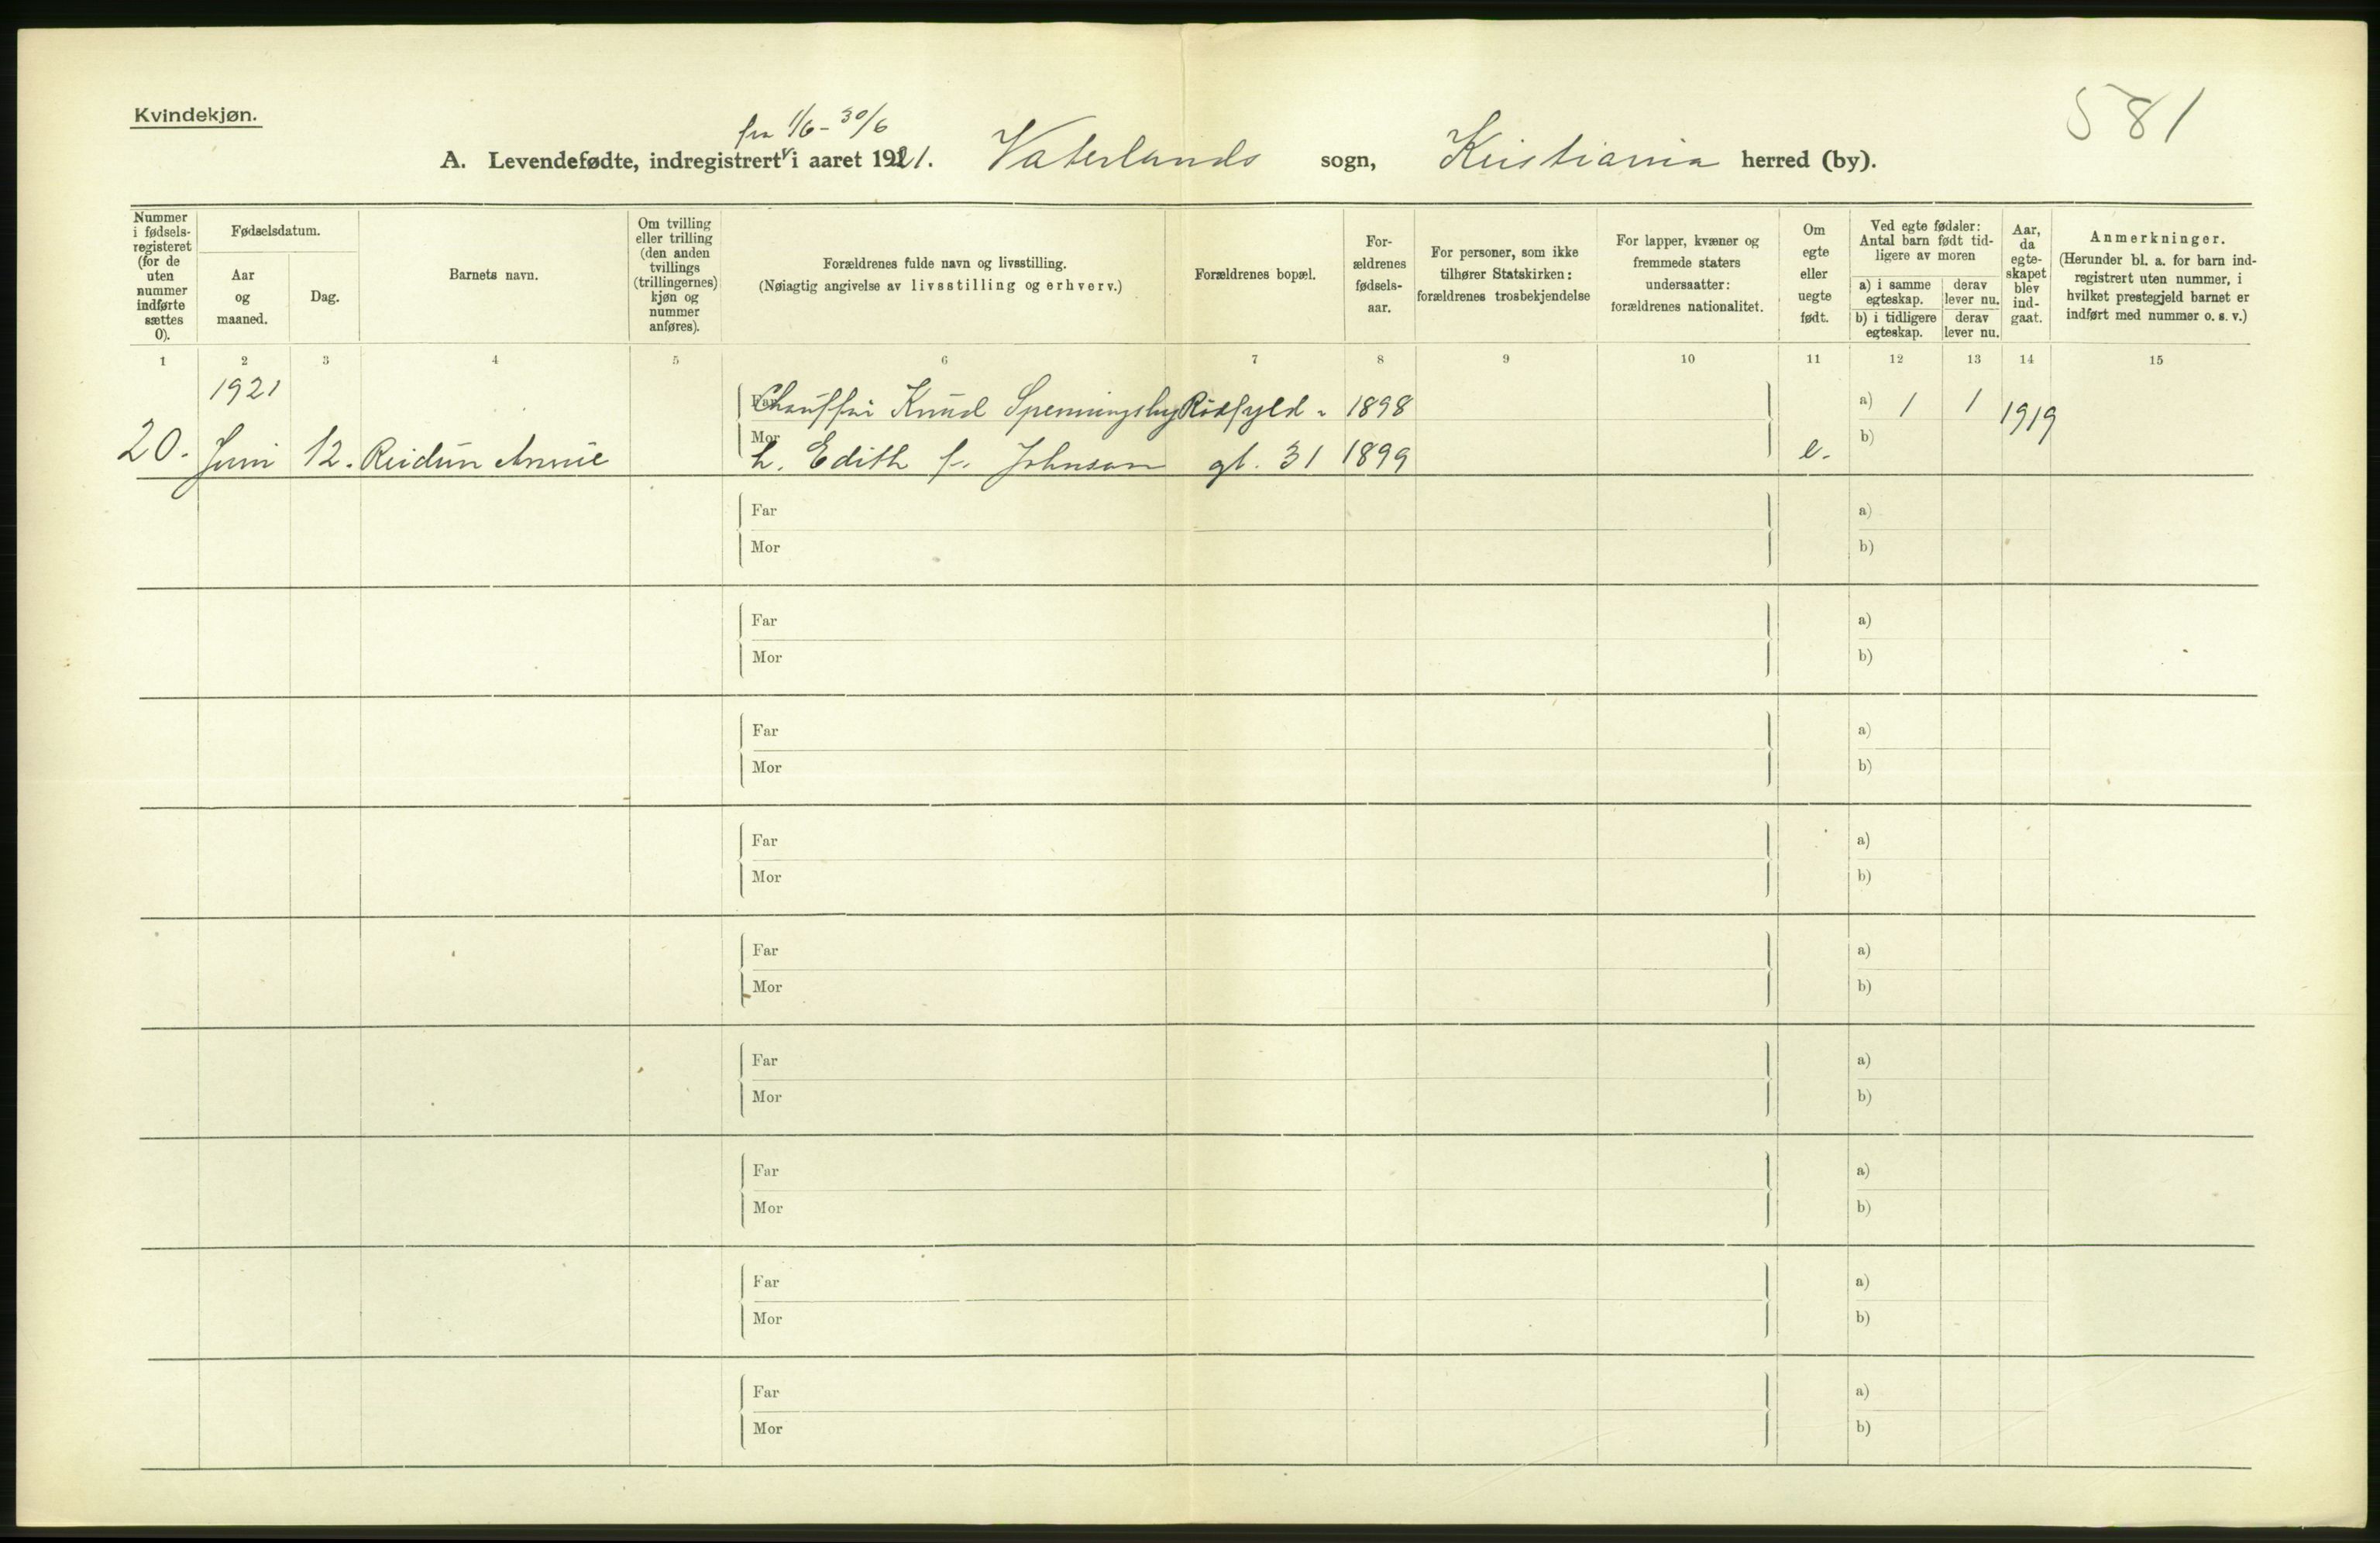 Kvindekjøn.
581
fra 1/6 - 30/6
A. Levendefødte, indregistrert i aaret 1921. Vaterlands sogn, Kristiania herred (by).
Nummer i fødsels-registeret (for de uten nummer indførte sættes 0).
Fødselsdatum.
Aar og maaned.
Dag.
Barnets navn.
Om tvilling eller trilling (den anden tvillings (trillingernes) kjøn og nummer anføres).
Forældrenes fulde navn og livsstilling.
(Nøiagtig angivelse av livsstilling og erhverv.)
Forældrenes bopæl.
For-ældrenes fødsels-aar.
For personer, som ikke tilhører Statskirken: forældrenes trosbekjendelse
For lapper, kvæner og fremmede staters undersaatter: forældrenes nationalitet.
Om egte eller uegte født.
Ved egte fødsler: Antal barn født tid-ligere av moren
a) i samme egteskap.
derav lever nu.
b) i tidligere egteskap.
derav lever nu.
Aar, da egte-skapet blev ind-gaat.
Anmerkninger.
(Herunder bl. a. for barn ind-registrert uten nummer, i hvilket prestegjeld barnet er indført med nummer o. s. v.)
1 2 3 4 5 6 7 8 9 10 11 12 13 14 15
1921
Far Chauffør Knud Spenningsby Rødfyld - 1898 a) 1 1 1919
20. Juni 12. Reidun Annie Mor h. Edith f. Johnson gt. 31 1899 e. b)
Far a)
Mor b)
Far a)
Mor b)
Far a)
Mor b)
Far a)
Mor b)
Far a)
Mor b)
Far a)
Mor b)
Far a)
Mor b)
Far a)
Mor b)
Far a)
Mor b)